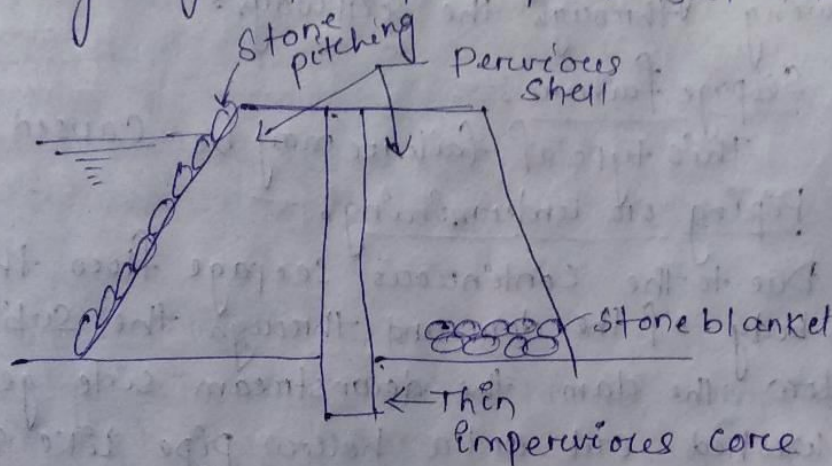 Stone
pitching
Pervious
Shell
Stone blanket
Thin
impervious core